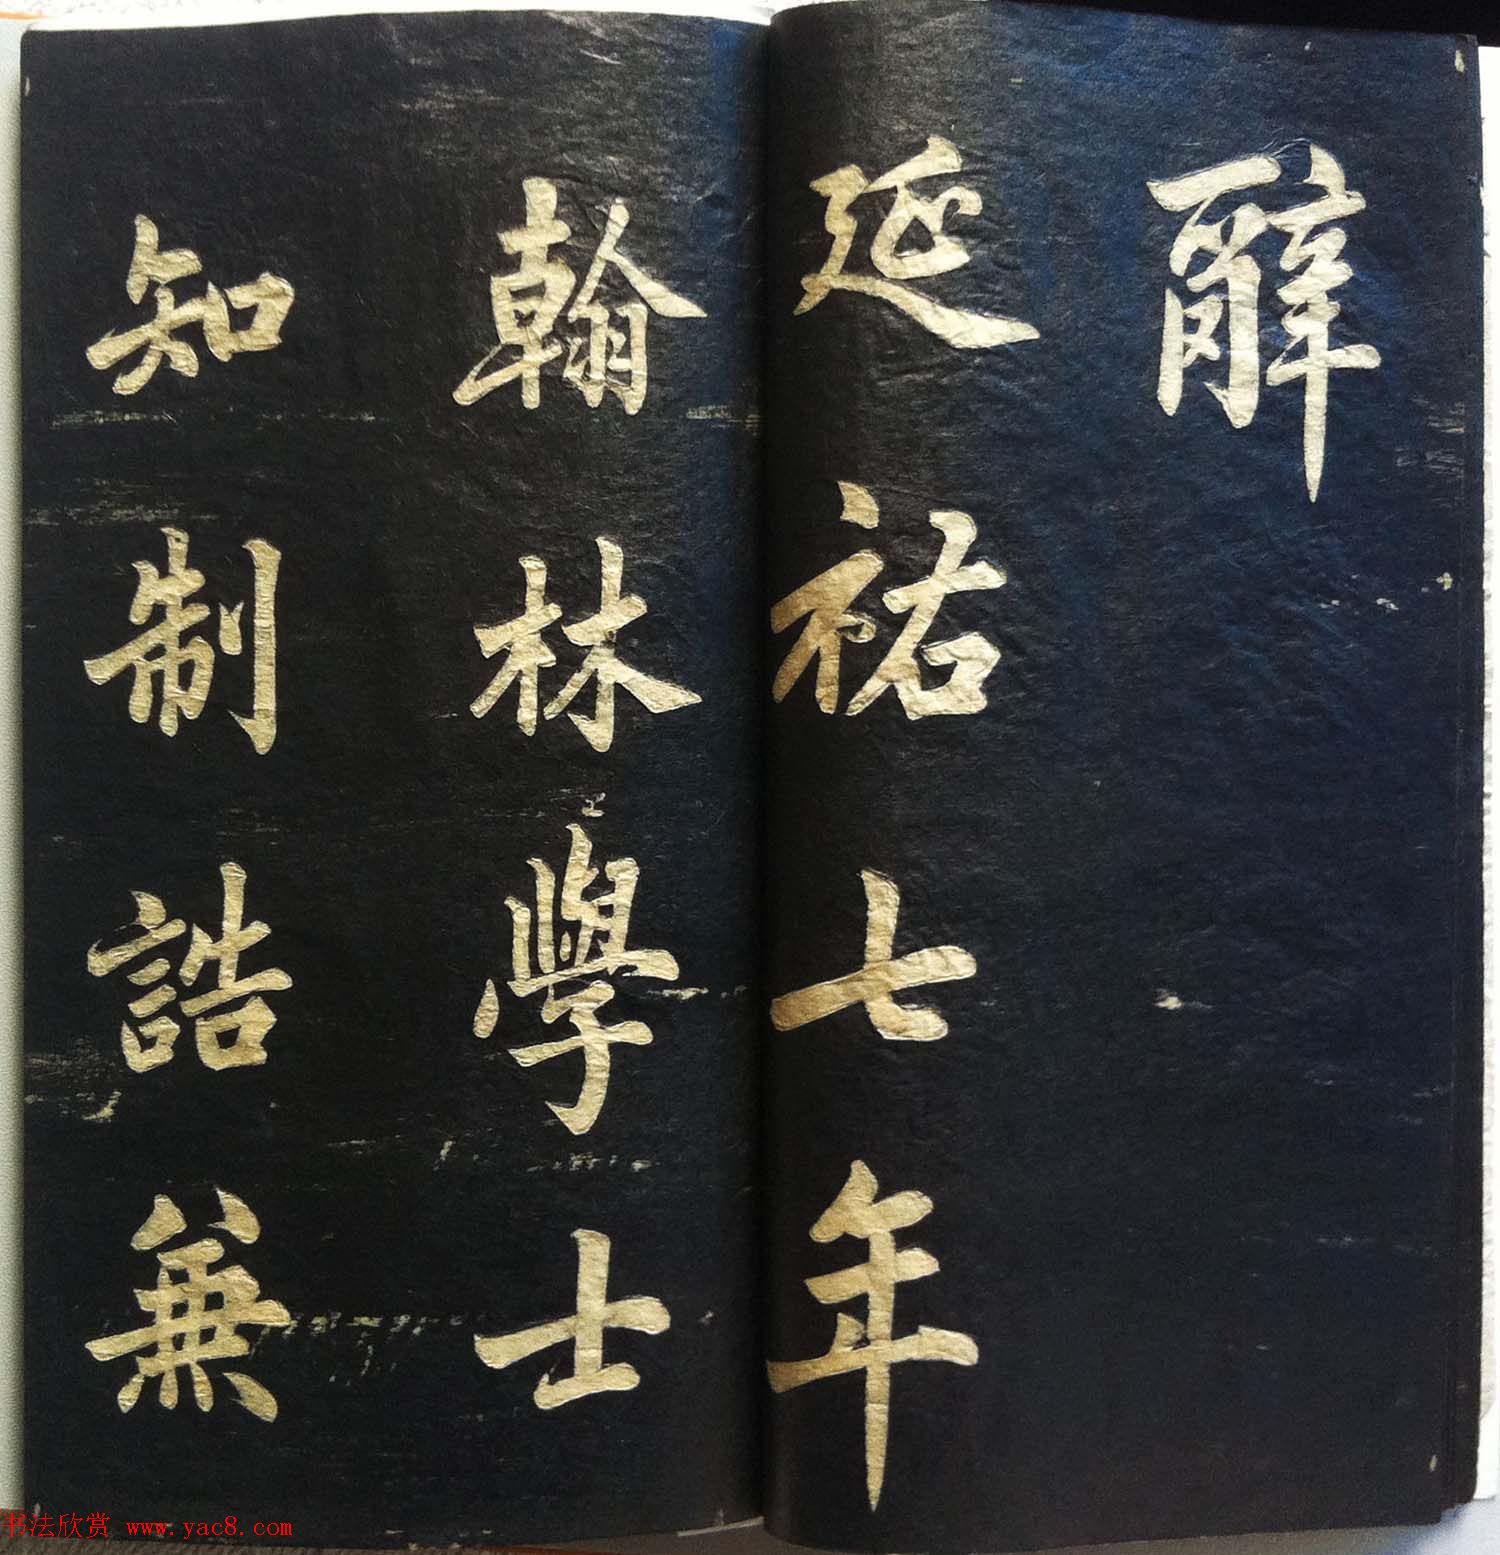 辭
延祐七年
翰林學士
知制誥兼
书法欣赏 www.yac8.com